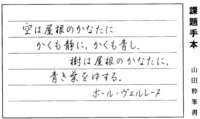 課題手本
山田幹峯書
空は屋根のかなたに
かくも静に、かくも青し。
樹は屋根のかなたに
青き葉をゆする。
ポール・ヴェルレーヌ